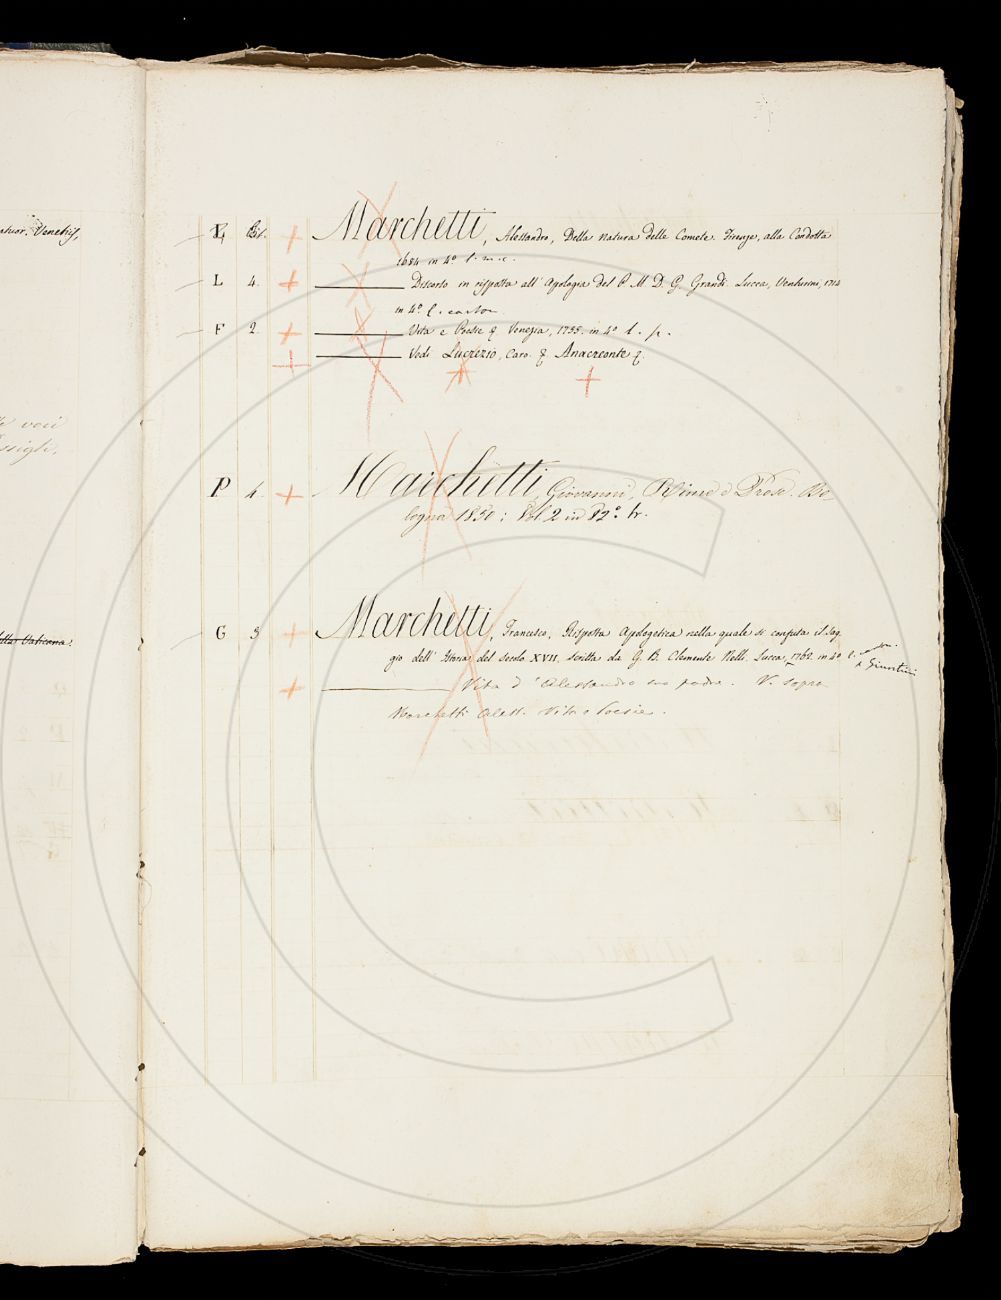 Venetiis,
voci
della Vaticana.
Marchetti, Alessandro, Della natura delle Comete. Firenze, alla Condotta
1684 in 4º l. m. c.
L 4. Discorso in risposta all' Apologia del P. M. D. G. Grandi. Lucca, Venturini, 1714
in 4º l. carton
F 2. Vita e Poesie &. Venezia, 1755. in 4º l. p.
Vedi Lucrezio, Caro. &. Anacreonte &.
P 4. Marchetti, Giovanni, Rime e Prose. Bo
logna 1850; Vol 2 in 12º br.
G 5 Marchetti, Francesco, Risposta Apologetica nella quale si confuta il Sag
gio dell' Storia del secolo XVII. scritta da G. B. Clemente Nelli. Lucca, 1762. in 4º
Giuntini
Vita d' Alessandro suo padre. V. sopra
Marchetti Aless. Vita e Poesie.